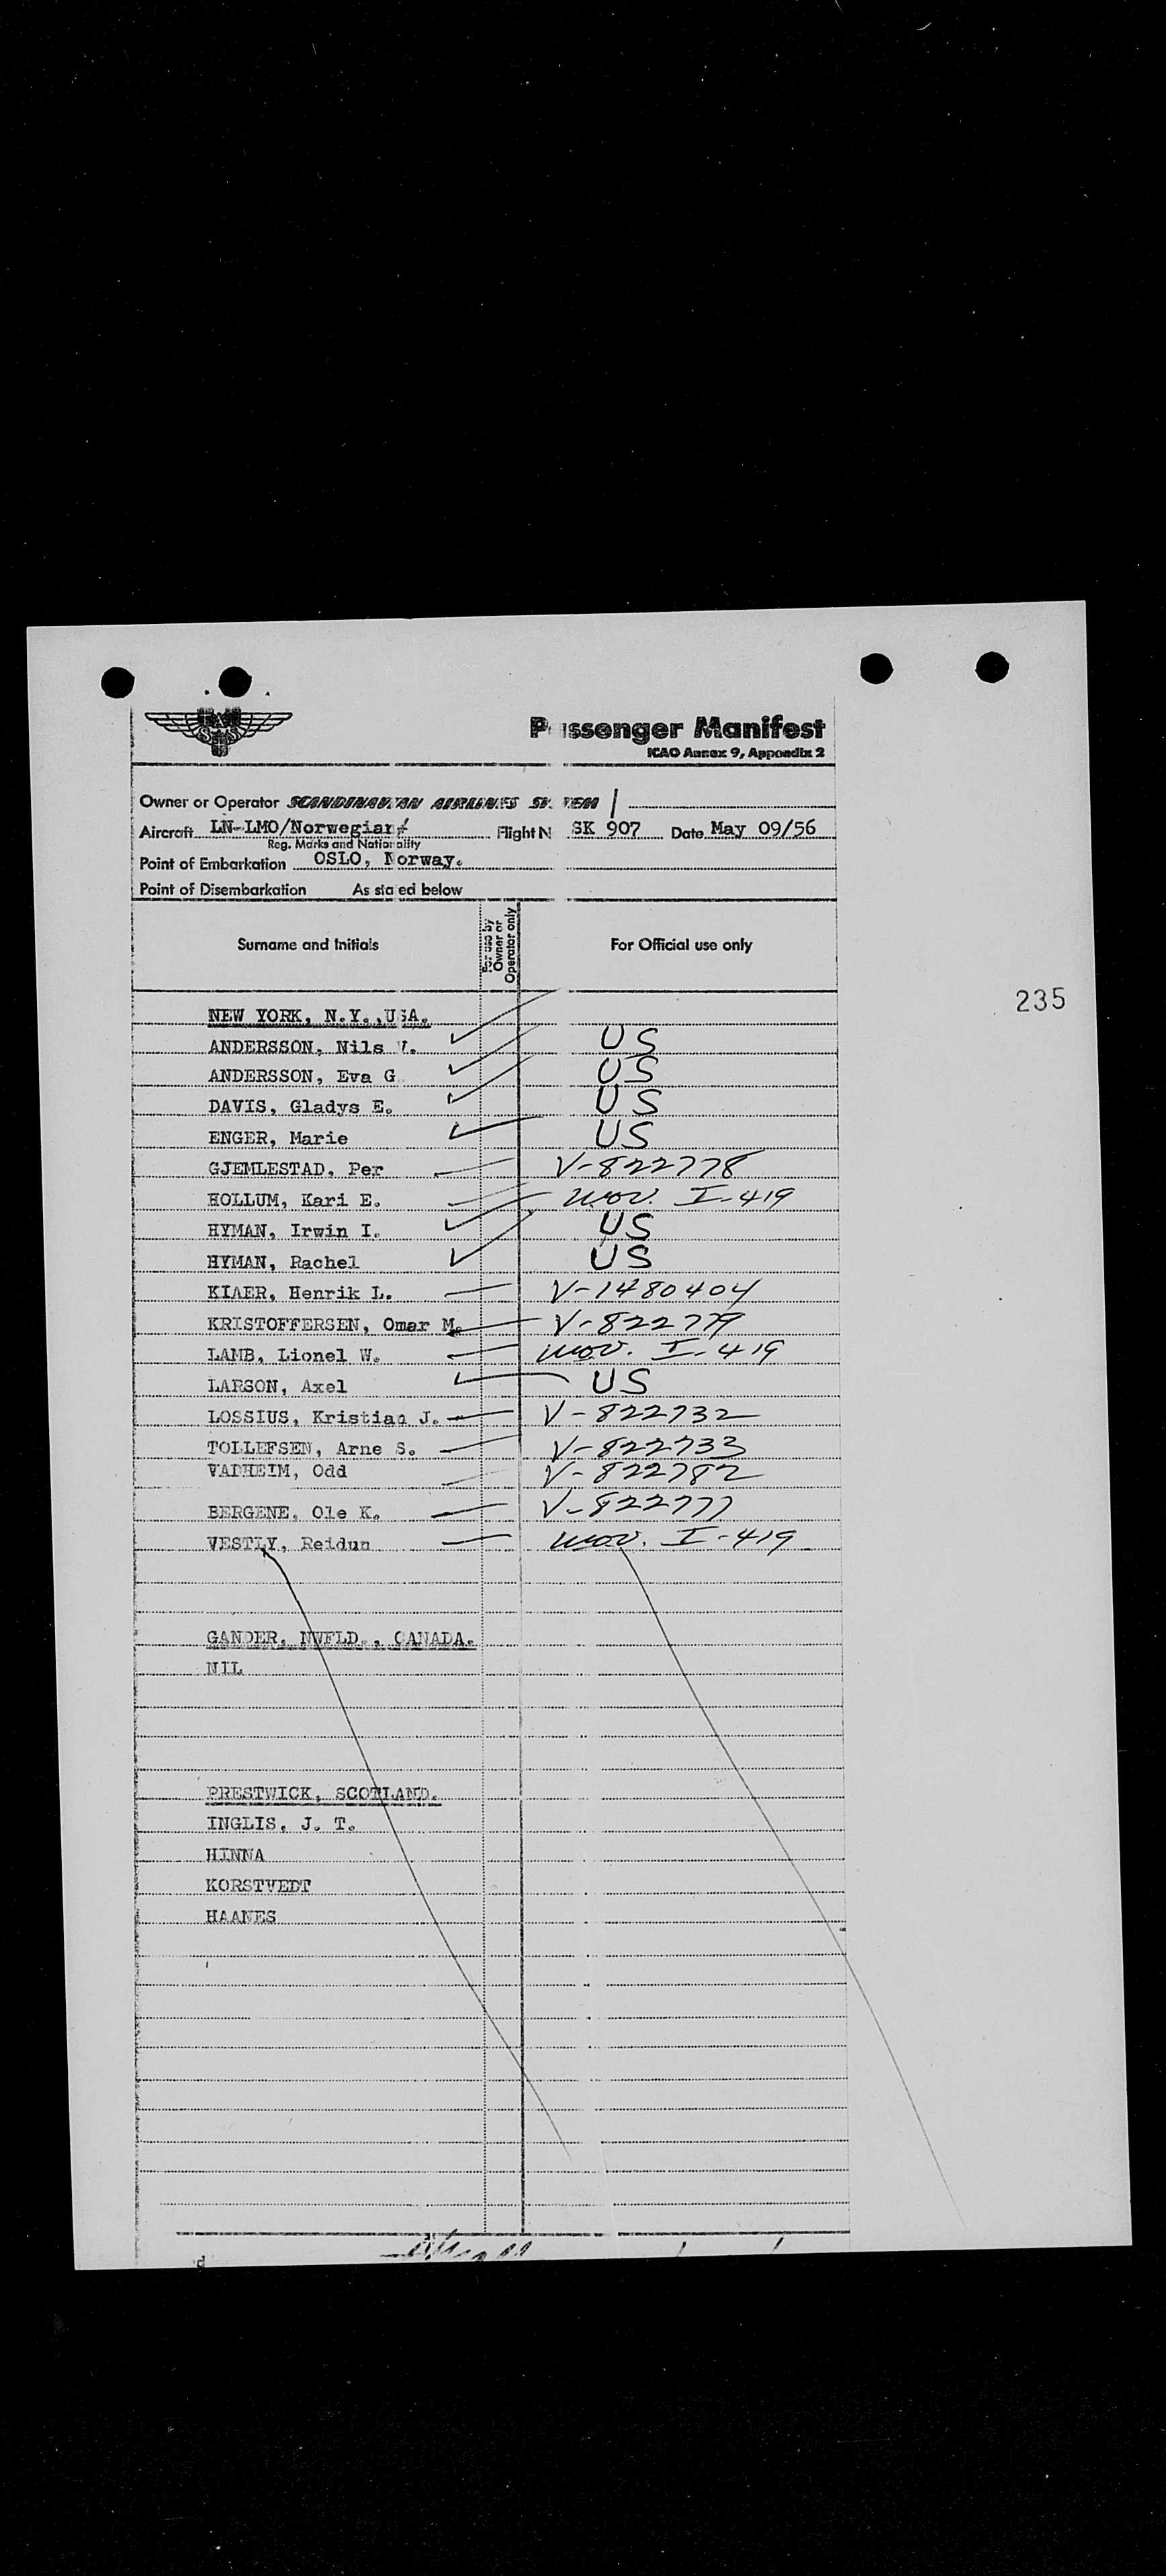 SAS
Passenger Manifest
ICAO Annex 9, Appendix 2
Owner or Operator SCANDINAVIAN AIRLINES SYSTEM
Aircraft LN-LMO/Norwegian Flight N SK 907 Date May 09/56
Reg. Marks and Nationality
Point of Embarkation OSLO, Norway.
Point of Disembarkation As stated below
Surname and Initials For use by Owner or Operator only For Official use only
235
NEW YORK, N.Y.,USA.
ANDERSSON, Nils V. US
ANDERSSON, Eva G US
DAVIS, Gladys E. US
ENGER, Marie US
GJEMLESTAD, Per V-822778
HOLLUM, Kari E. mov. I-419
HYMAN, Irwin I. US
HYMAN, Rachel US
KIAER, Henrik L. V-1480404
KRISTOFFERSEN, Omar M. V-822779
LAMB, Lionel W. mov. I-419
LARSON, Axel US
LOSSIUS, Kristian J. V-822732
TOLLEFSEN, Arne S. V-822733
VADHEIM, Odd V-822782
BERGENE, Ole K. V-822777
VESTLY, Reidun mov. I-419
GANDER, NWFLD., CANADA.
NIL
PRESTWICK, SCOTLAND.
INGLIS, J. T.
HINNA
KORSTVEDT
HAANES